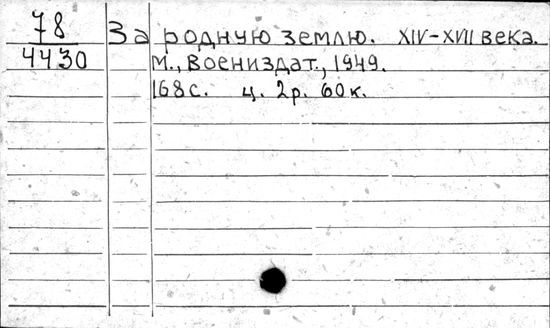 78
4430
За родную землю. XIV-XVII века.
М., Воениздат., 1949.
168с. ц. 2р. 60к.